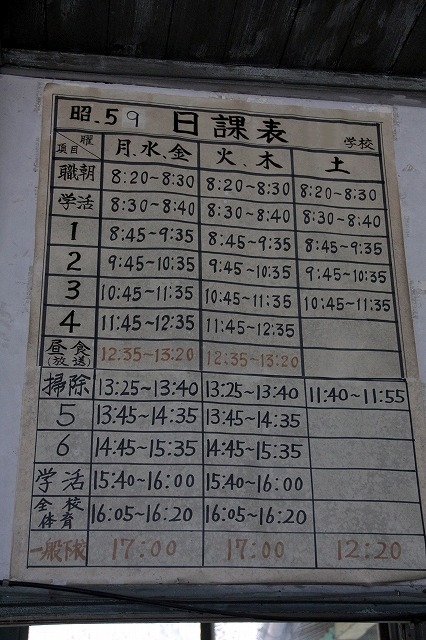 昭.59 日課表 学校
項目 曜 月、水、金 火、木 土
職朝 8:20~8:30 8:20~8:30 8:20~8:30
学活 8:30~8:40 8:30~8:40 8:30~8:40
1 8:45~9:35 8:45~9:35 8:45~9:35
2 9:45~10:35 9:45~10:35 9:45~10:35
3 10:45~11:35 10:45~11:35 10:45~11:35
4 11:45~12:35 11:45~12:35
昼食(放送) 12:35~13:20 12:35~13:20
掃除 13:25~13:40 13:25~13:40 11:40~11:55
5 13:45~14:35 13:45~14:35
6 14:45~15:35 14:45~15:35
学活 15:40~16:00 15:40~16:00
全校体育 16:05~16:20 16:05~16:20
一般下校 17:00 17:00 12:20